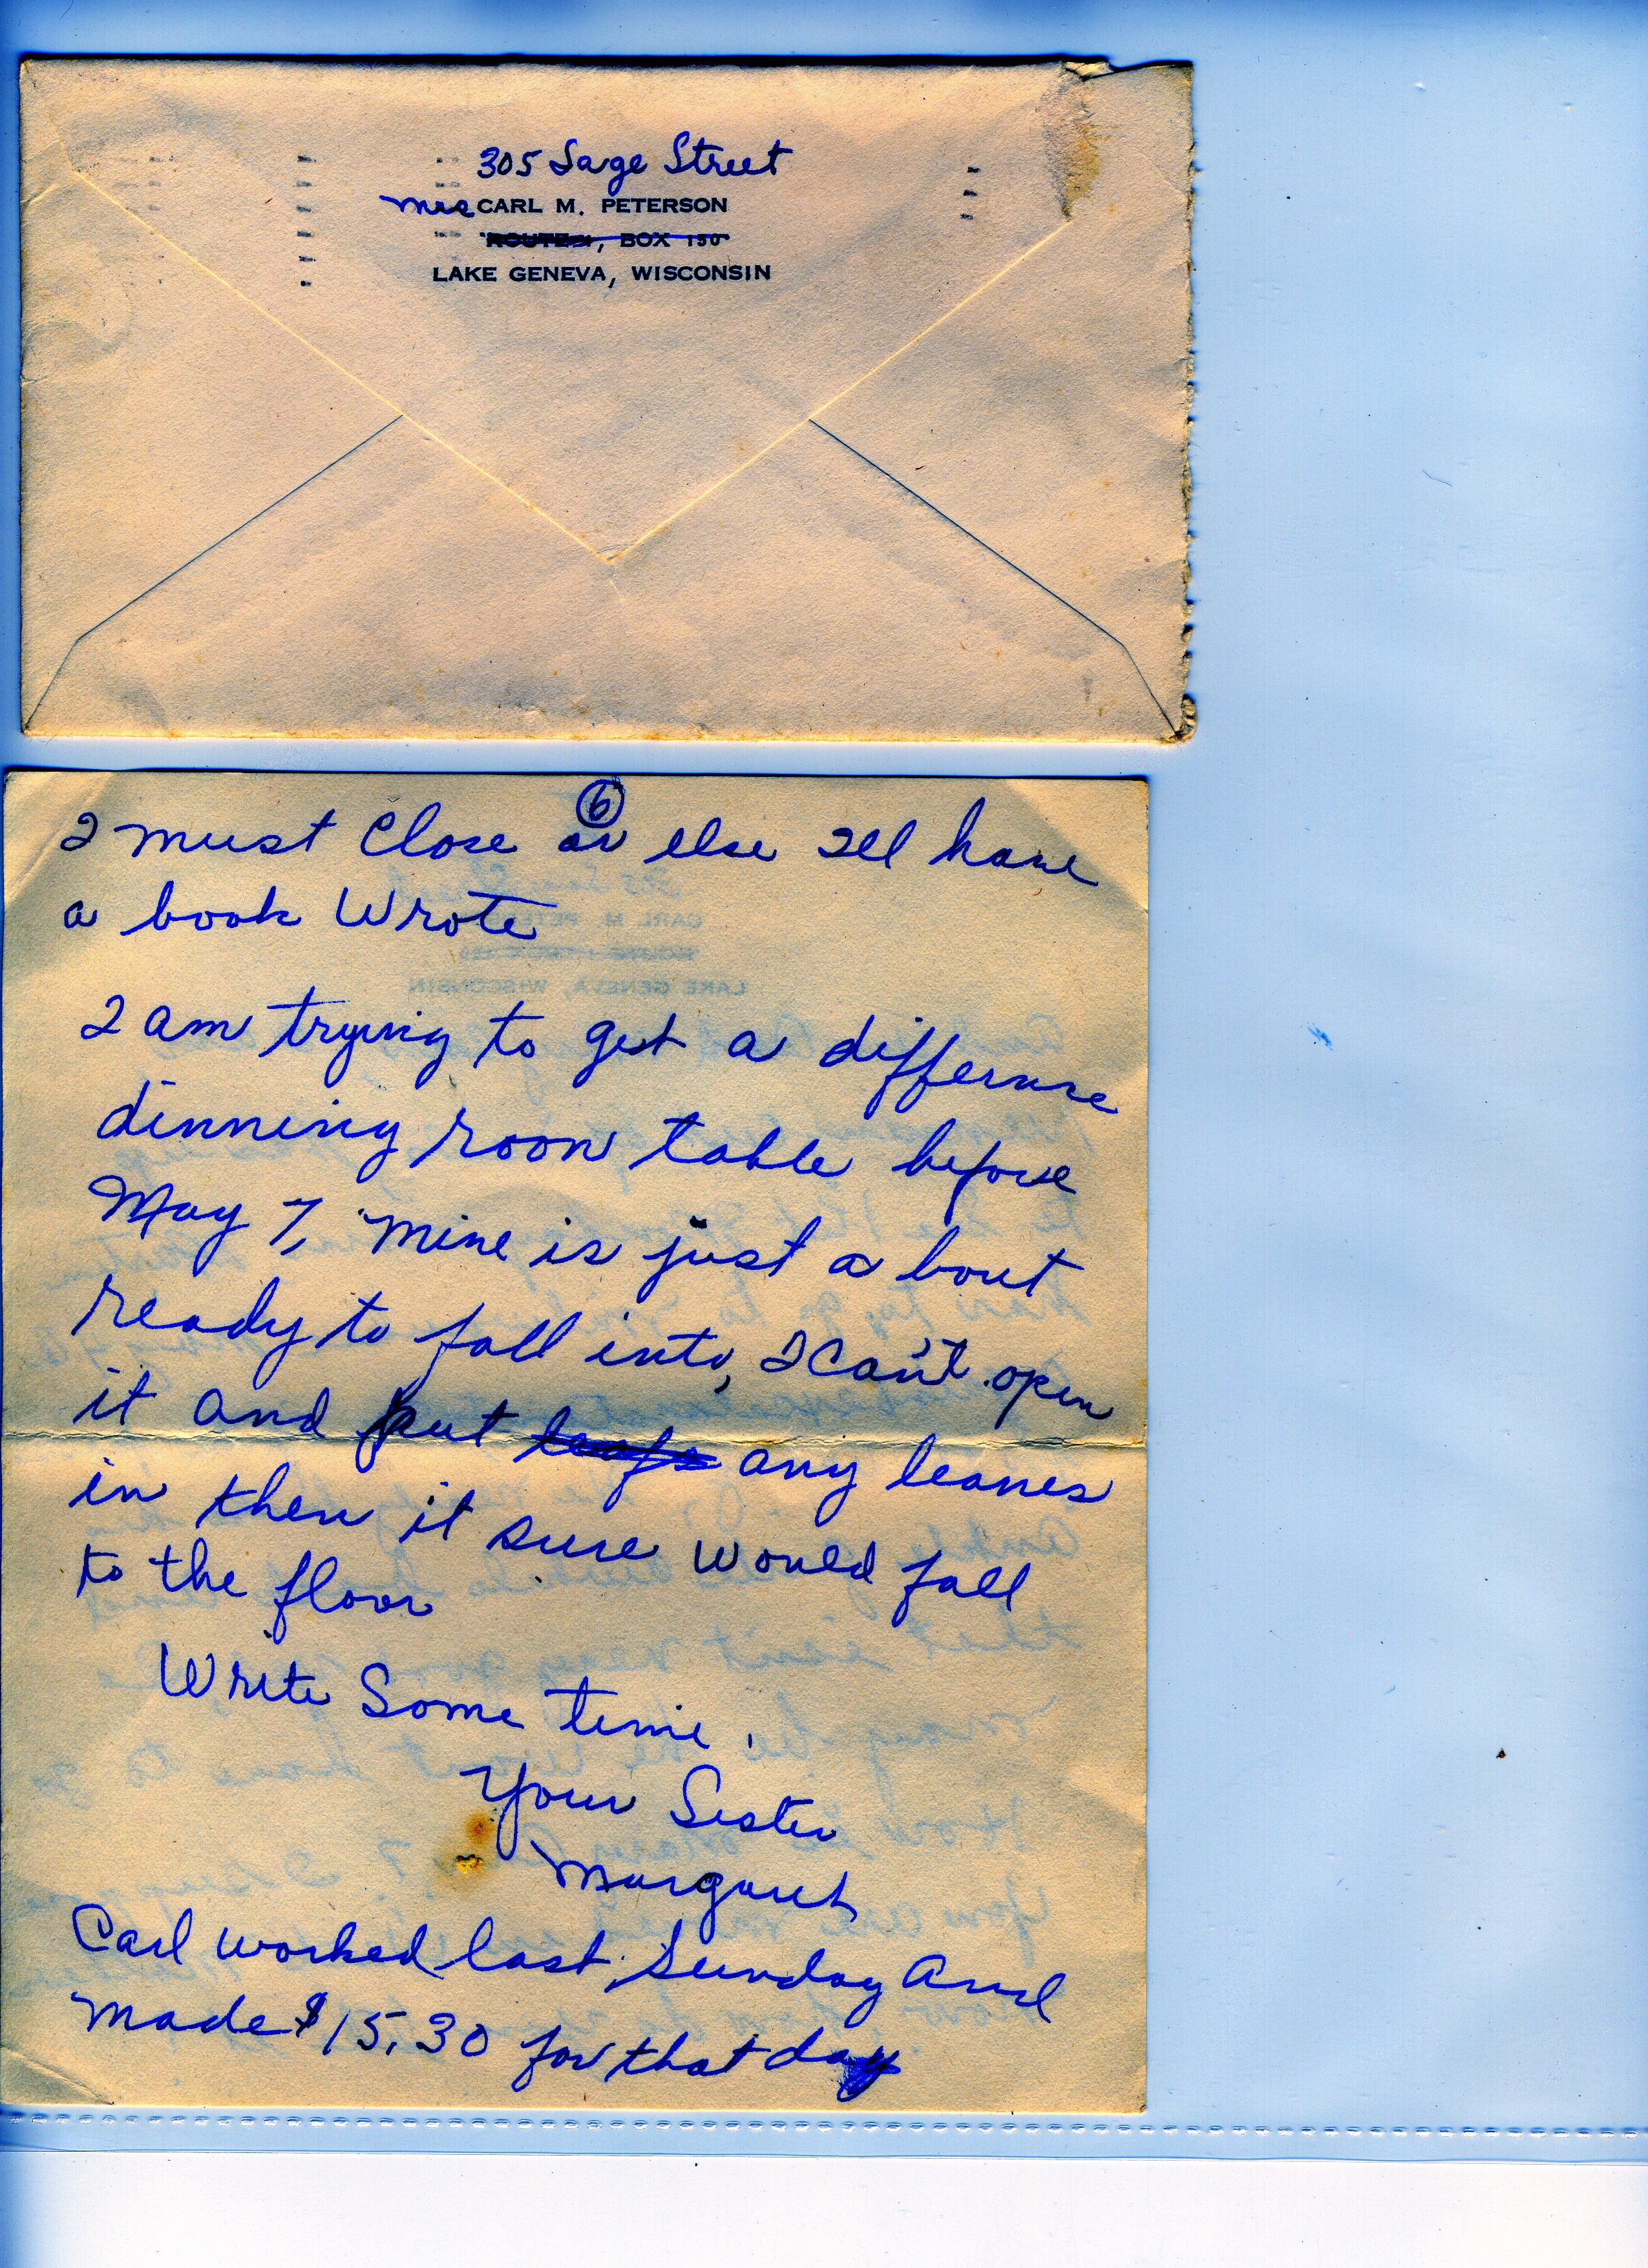 305 Sage Street
Mrs CARL M. PETERSON
ROUTE 1, BOX 150
LAKE GENEVA, WISCONSIN
6
I must Close or else Ill have
a book Wrote
I am trying to get a differense
dinning room table before
May 7, Mine is just a bout
ready to fall into, I can't open
it and put leafs any leaves
in then it sure would fall
to the floor
Write Some time.
Your Sister
Margaret
Carl worked last Sunday And
made $15.30 for that day